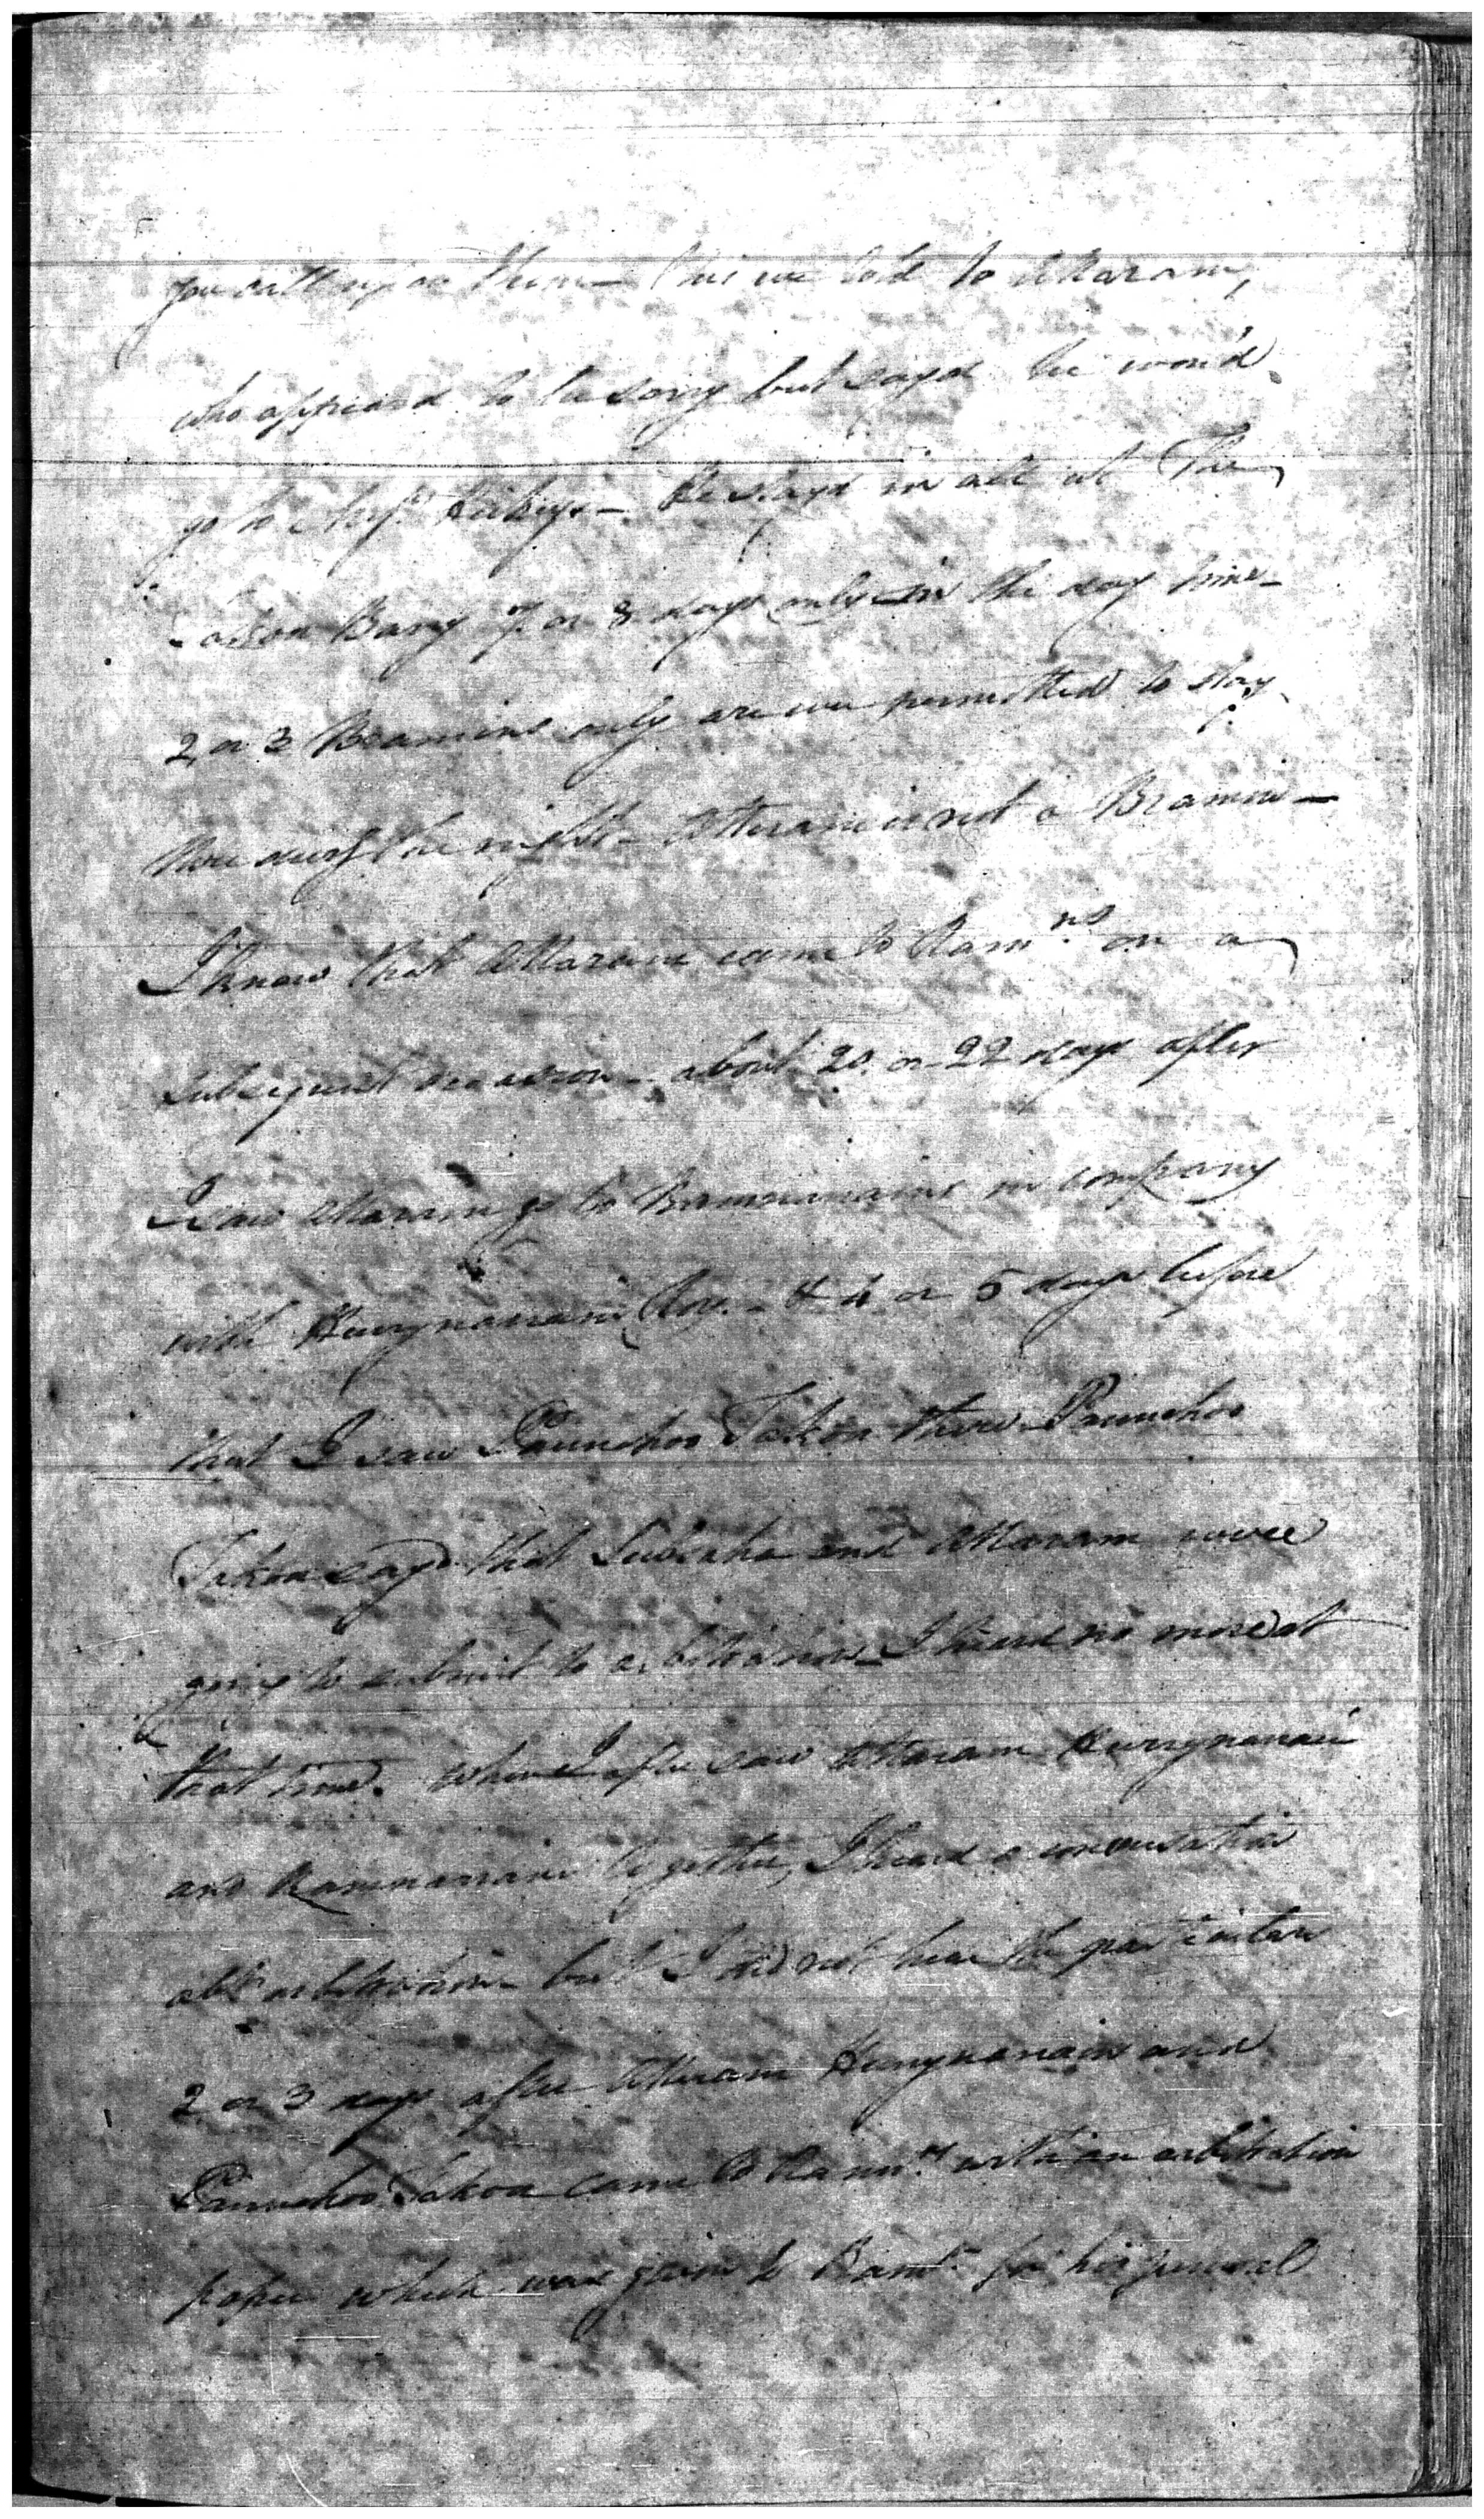 you call upon them – this we told to Attaram,
who appeard to be sorry but sayd he wou'd
go to – He stayd in all at The
Bary 7 or 8 days only in the day time –
2 or 3 Bramins only are ever permitted to stay
there during the night – Attaram is not a Bramin –
I know that Attaram came to Ramns. on a
subsequent occasion – about 20 or 22 days after
I saw Attaram go to Ramnarrains in company
with Hurrynarrain Roy – & 4 or 5 days before
that I saw Paunchoo Takoor there – Paunchoo
Takoor sayd that and Attaram were
going to submit to arbitration – I heard no more at
that time. When I after saw Attaram Hurrynarrain
and Ramnarrain together, I heard a conversation
abt. arbitration – but I did not hear the particulars
2 or 3 days after Attaram Hurrynarrain and
Paunchoo Takoor came to Ramns. with an arbitration
paper which was given to Ramn. for his perusal